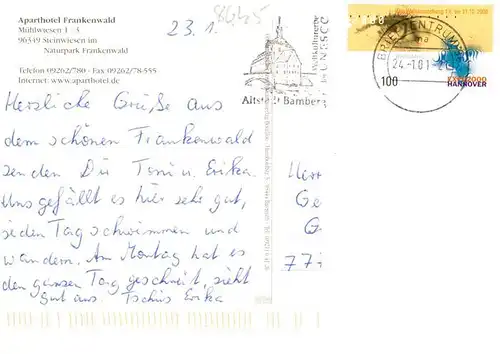 Aparthotel Frankenwald
Mühlwiesen 1 - 3
96349 Steinwiesen im
Naturpark Frankenwald
Telefon 09262/780 - Fax 09262/78-555
Internet: www.aparthotel.de
23.1.
Herzliche Grüße aus
dem schönen Frankenwald
senden Dir Toni u. Erika.
Uns gefällt es hier sehr gut,
jeden Tag schwimmen und
wandern. Am Montag hat es
den ganzen Tag geschneit, sieht
gut aus. Tschüs Erika
Weltkulturerbe
UNESCO
Altstadt Bamberg
BRIEFZENTRUM
24.-1.01
100
EXPO2000
HANNOVER
Herr
Ge
G
777